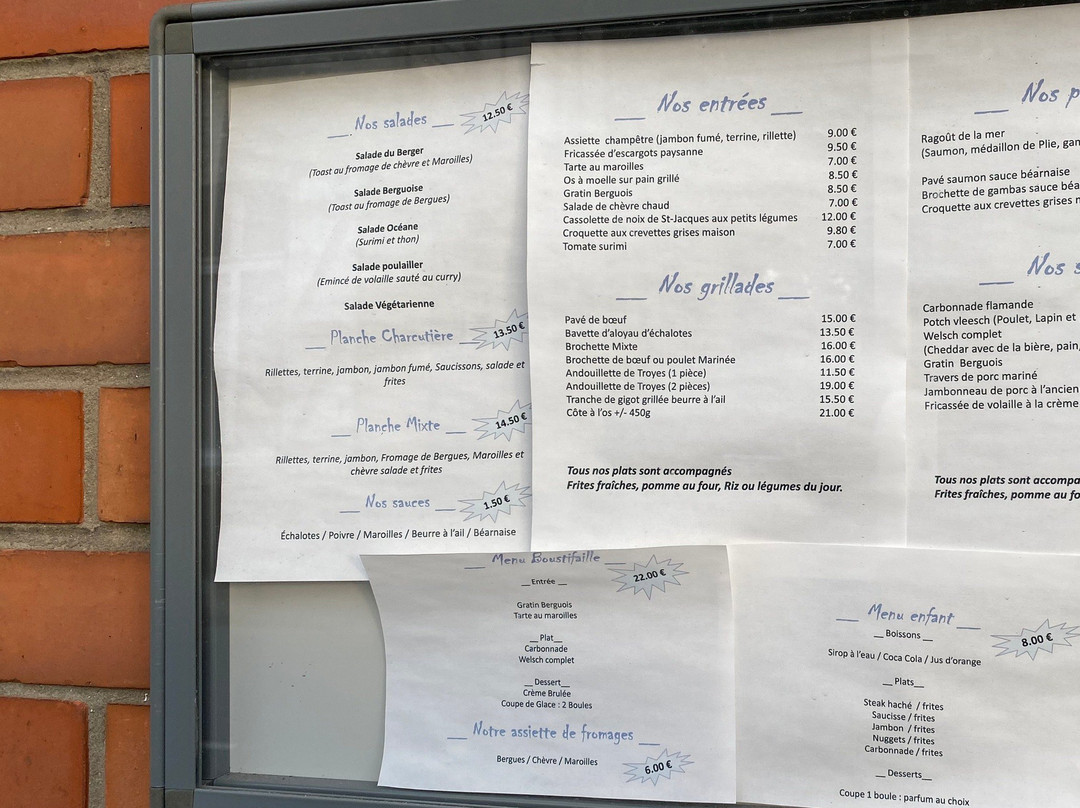 Nos salades
12.50 €
Salade du Berger
(Toast au fromage de chèvre et Maroilles)
Salade Berguoise
(Toast au fromage de Bergues)
Salade Océane
(Surimi et thon)
Salade poulailler
(Emincé de volaille sauté au curry)
Salade Végétarienne
Planche Charcutière
13.50 €
Rillettes, terrine, jambon, jambon fumé, Saucissons, salade et
frites
Planche Mixte
14.50 €
Rillettes, terrine, jambon, Fromage de Bergues, Maroilles et
chèvre salade et frites
Nos sauces
1.50 €
Échalotes / Poivre / Maroilles / Beurre à l'ail / Béarnaise
Nos entrées
Assiette champêtre (jambon fumé, terrine, rillette) 9.00 €
Fricassée d'escargots paysanne 9.50 €
Tarte au maroilles 7.00 €
Os à moelle sur pain grillé 8.50 €
Gratin Berguois 8.50 €
Salade de chèvre chaud 7.00 €
Cassolette de noix de St-Jacques aux petits légumes 12.00 €
Croquette aux crevettes grises maison 9.80 €
Tomate surimi 7.00 €
Nos grillades
Pavé de bœuf 15.00 €
Bavette d'aloyau d'échalotes 13.50 €
Brochette Mixte 16.00 €
Brochette de bœuf ou poulet Marinée 16.00 €
Andouillette de Troyes (1 pièce) 11.50 €
Andouillette de Troyes (2 pièces) 19.00 €
Tranche de gigot grillée beurre à l'ail 15.50 €
Côte à l'os +/- 450g 21.00 €
Tous nos plats sont accompagnés
Frites fraîches, pomme au four, Riz ou légumes du jour.
Nos p
Ragoût de la mer
(Saumon, médaillon de Plie, gam
Pavé saumon sauce béarnaise
Brochette de gambas sauce béa
Croquette aux crevettes grises
Nos s
Carbonnade flamande
Potch vleesch (Poulet, Lapin et
Welsch complet
(Cheddar avec de la bière, pain,
Gratin Berguois
Travers de porc mariné
Jambonneau de porc à l'ancien
Fricassée de volaille à la crème
Tous nos plats sont accompa
Frites fraîches, pomme au fo
Menu Boustifaille
22.00 €
__ Entrée __
Gratin Berguois
Tarte au maroilles
__ Plat__
Carbonnade
Welsch complet
__ Dessert__
Crème Brulée
Coupe de Glace : 2 Boules
Notre assiette de fromages
Bergues / Chèvre / Maroilles
6.00 €
Menu enfant
8.00 €
__ Boissons __
Sirop à l'eau / Coca Cola / Jus d'orange
__ Plats__
Steak haché / frites
Saucisse / frites
Jambon / frites
Nuggets / frites
Carbonnade / frites
__ Desserts__
Coupe 1 boule : parfum au choix